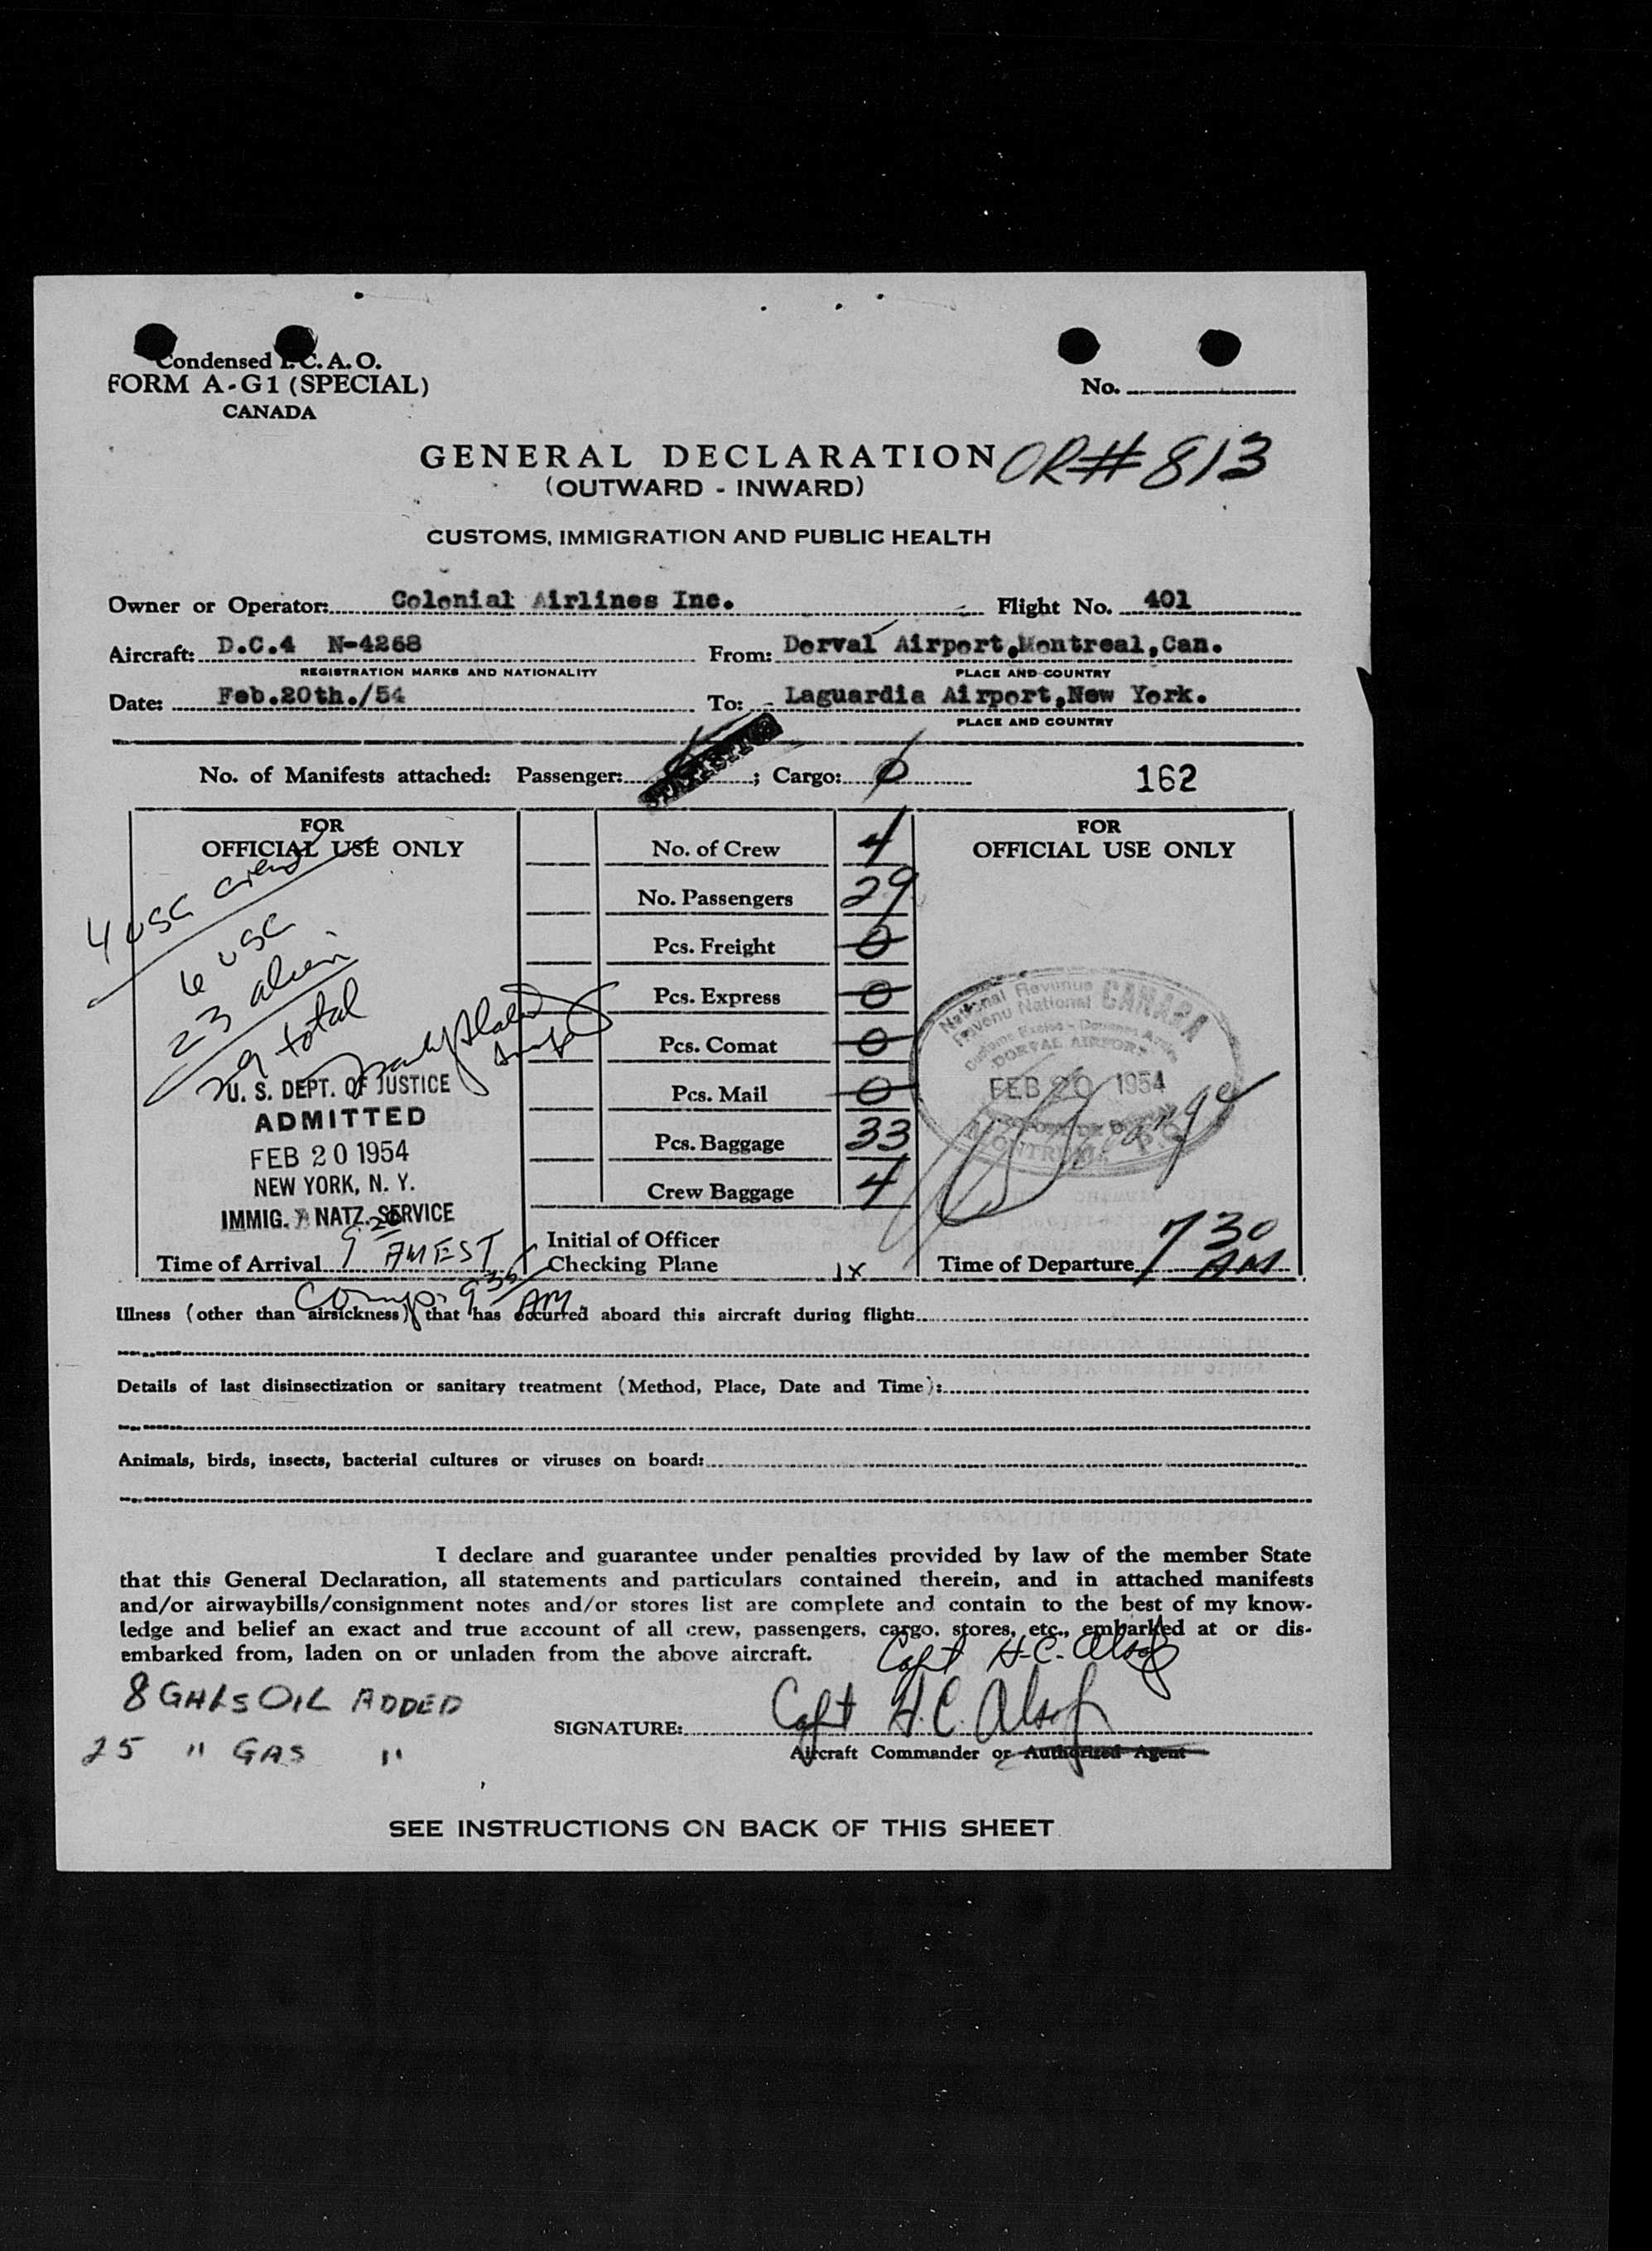 Condensed I.C.A.O.
FORM A-G1 (SPECIAL)
CANADA
No.
GENERAL DECLARATION OR# 813
(OUTWARD - INWARD)
CUSTOMS, IMMIGRATION AND PUBLIC HEALTH
Owner or Operator: Colonial Airlines Inc. Flight No. 401
Aircraft: D.C.4 N-4268 From: Dorval Airport,Montreal,Can.
REGISTRATION MARKS AND NATIONALITY PLACE AND COUNTRY
Date: Feb.20th./54 To: Laguardia Airport,New York.
PLACE AND COUNTRY
No. of Manifests attached: Passenger: ; Cargo: 162
FOR
OFFICIAL USE ONLY
4 USC crew
6 USC
23 alien
29 total
U. S. DEPT. OF JUSTICE
ADMITTED
FEB 20 1954
NEW YORK, N. Y.
IMMIG. & NATZ. SERVICE
Time of Arrival 9:20 AM EST
Comp. 935 AM
No. of Crew 4
No. Passengers 29
Pcs. Freight 0
Pcs. Express 0
Pcs. Comat 0
Pcs. Mail 0
Pcs. Baggage 33
Crew Baggage 4
Initial of Officer
Checking Plane
FOR
OFFICIAL USE ONLY
National Revenue CANADA
Revenu National
Customs Excise - Douanes Accise
DORVAL AIRPORT
FEB 20 1954
MONTREAL P.Q.
Time of Departure 7 30 AM
Illness (other than airsickness) that has occurred aboard this aircraft during flight:
Details of last disinsectization or sanitary treatment (Method, Place, Date and Time):
Animals, birds, insects, bacterial cultures or viruses on board:
I declare and guarantee under penalties provided by law of the member State
that this General Declaration, all statements and particulars contained therein, and in attached manifests
and/or airwaybills/consignment notes and/or stores list are complete and contain to the best of my know-
ledge and belief an exact and true account of all crew, passengers, cargo, stores, etc., embarked at or dis-
embarked from, laden on or unladen from the above aircraft.
Capt H.C. Alsop
8 GALS OIL ADDED
25 " GAS "
SIGNATURE: Capt H.C. Alsop
Aircraft Commander or Authorized Agent
SEE INSTRUCTIONS ON BACK OF THIS SHEET